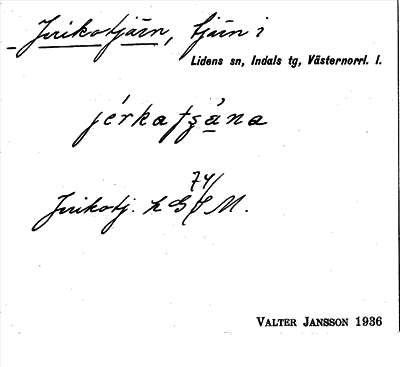 Jerikotjärn, tjärn i
Lidens sn, Indals tg, Västernorrl. l.
jérkatʂä̀na
74/
Jerikotj. k GS M.
Valter Jansson 1936